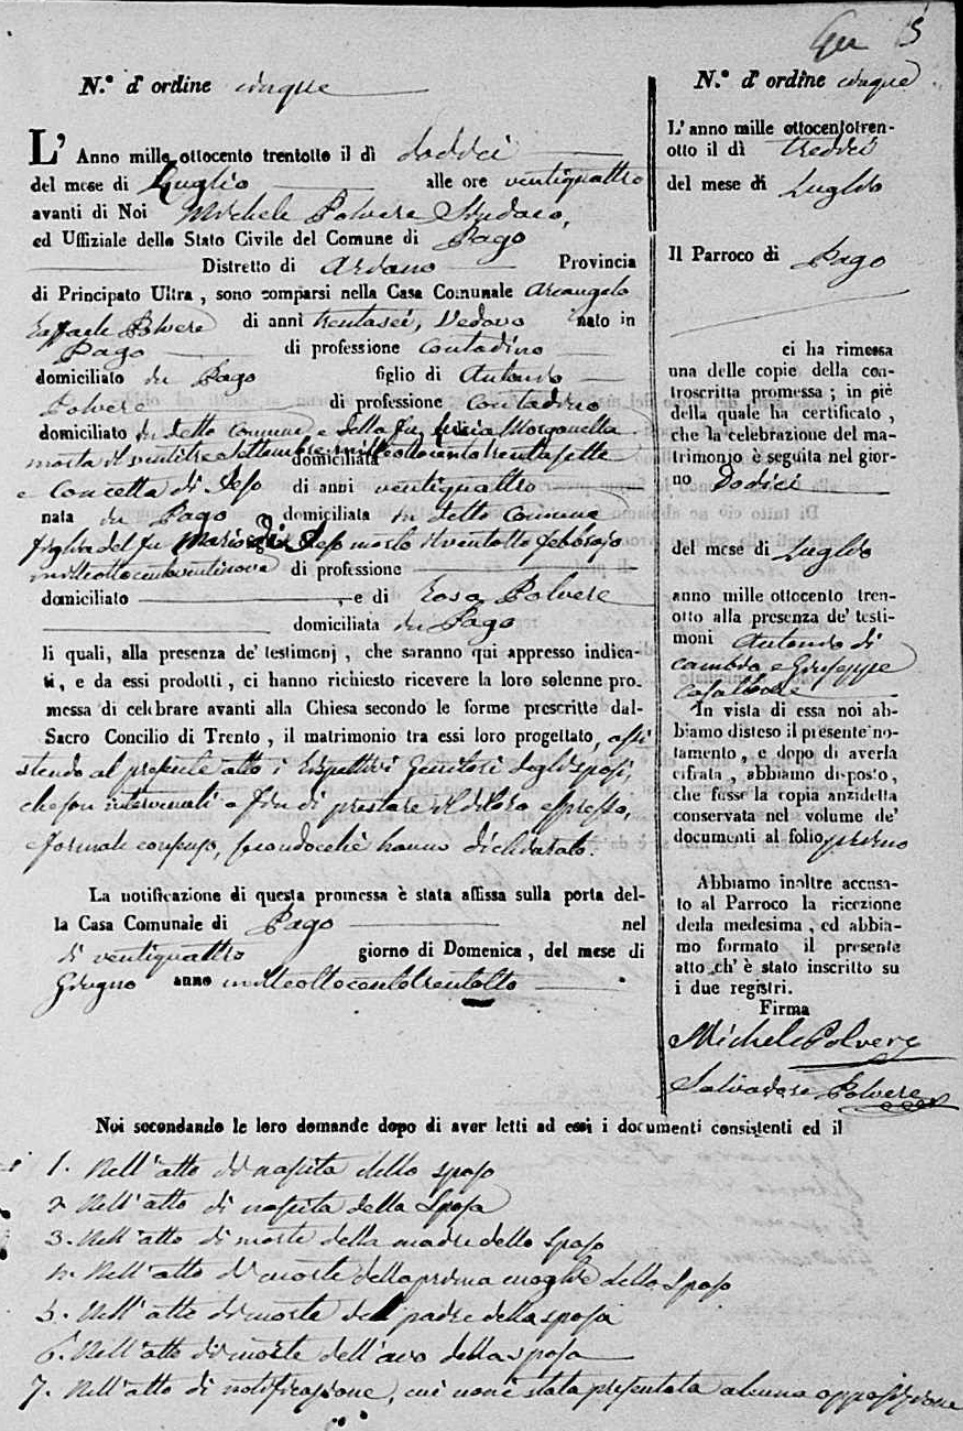 5
N.° d'ordine cinque
L'Anno mille ottocento trentotto il dì dodici
del mese di Luglio alle ore ventiquattro
avanti di Noi Michele Polvere Sindaco,
ed Uffiziale dello Stato Civile del Comune di Pago
Distretto di Ariano Provincia
di Principato Ultra, sono comparsi nella Casa Comunale Arcangelo
Raffaele Polvere di anni trentasei, Vedovo nato in
Pago di professione contadino
domiciliato in Pago figlio di Antonio
Polvere di professione contadino
domiciliato in detto Comune e della fu Lucia Morganella
morta il ventitre Settembre mille ottocento trentasette
domiciliata
e Concetta di Peso di anni ventiquattro
nata in Pago domiciliata in detto Comune
figlia del fu Mario di Peso morto il ventotto febbrajo
milleottocentoventinove di professione
domiciliato , e di Rosa Polvere
domiciliata in Pago
li quali, alla presenza de' testimonj, che saranno qui appresso indica-
ti, e da essi prodotti, ci hanno richiesto ricevere la loro solenne pro-
messa di celebrare avanti alla Chiesa secondo le forme prescritte dal
Sacro Concilio di Trento, il matrimonio tra essi loro progettato, assi
stendo al presente atto i rispettivi Genitori degli sposi,
che son intervenuti a fin di prestare il di loro espresso,
e formale consenso, secondochè hanno dichiarato.
La notificazione di questa promessa è stata affissa sulla porta del-
la Casa Comunale di Pago nel
dì ventiquattro giorno di Domenica, del mese di
Giugno anno milleottocentotrentotto
N.° d'ordine cinque
L'anno mille ottocentotren-
otto il dì tredici
del mese di Luglio
Il Parroco di Pago
ci ha rimessa
una delle copie della con-
troscritta promessa; in piè
della quale ha certificato,
che la celebrazione del ma-
trimonio è seguita nel gior-
no Dodici
del mese di Luglio
anno mille ottocento tren-
otto alla presenza de' testi-
moni Antonio di
cambio e Giuseppe
In vista di essa noi ab-
biamo disteso il presente no-
tamento, e dopo di averla
cifrata, abbiamo disposto,
che fusse la copia anzidetta
conservata nel volume de'
documenti al folio primo
Abbiamo inoltre accusa-
to al Parroco la ricezione
della medesima, ed abbia-
mo formato il presente
atto ch'è stato inscritto su
i due registri.
Firma
Michele Polvere
Salvadore Polvere
Noi secondando le loro domande dopo di aver letti ad essi i documenti consistenti ed il
1. Nell'atto di nascita dello sposo
2. Nell'atto di nascita della Sposa
3. Nell'atto di morte della madre dello Sposo
4. Nell'atto di morte della prima moglie dello Sposo
5. Nell'atto di morte del padre della sposa
6. Nell'atto di morte dell'avo della sposa
7. Nell'atto di notificazione, cui non è stata presentata alcuna opposizione